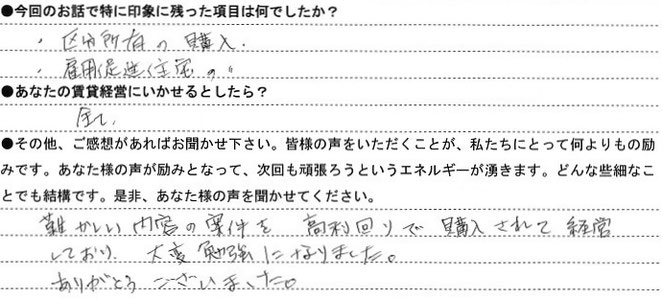 ●今回のお話で特に印象に残った項目は何でしたか?
・区分所有の購入.
・雇用促進住宅の〃
●あなたの賃貸経営にいかせるとしたら?
●その他、ご感想があればお聞かせ下さい。皆様の声をいただくことが、私たちにとって何よりもの励
みです。あなた様の声が励みとなって、次回も頑張ろうというエネルギーが湧きます。どんな些細なこ
とでも結構です。是非、あなた様の声を聞かせてください。
難かしい内容の案件を 高利回りで購入されて経営
しており、大変勉強になりました。
ありがとうございました。